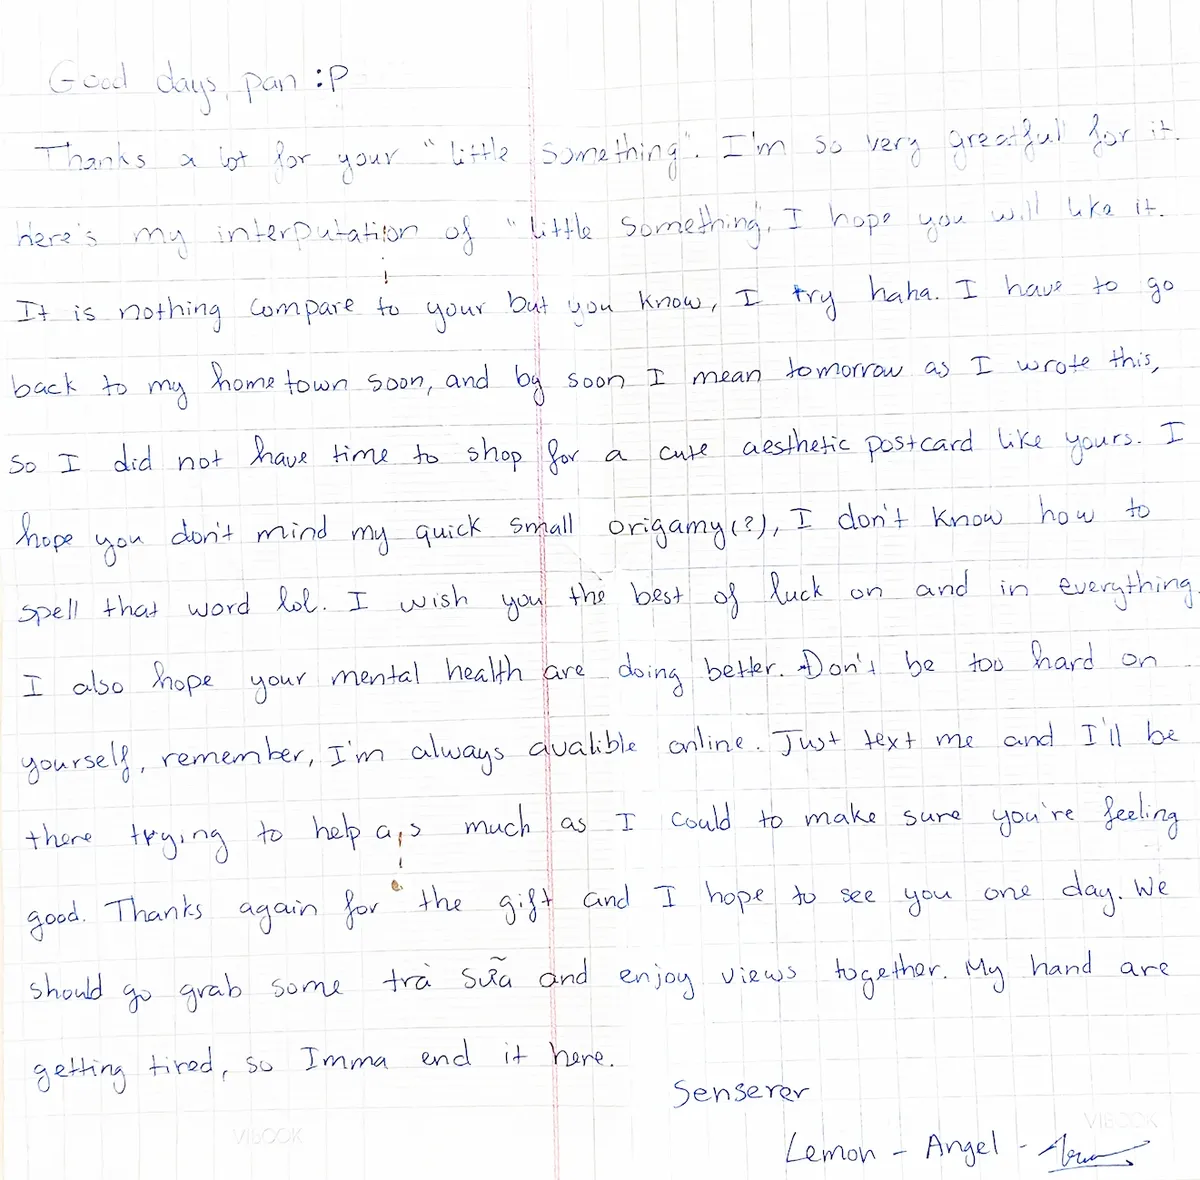 Good days, pan :P
Thanks a lot for your "little something". I'm so very greatful for it.
Here's my interputation of "little something", I hope you will like it.
It is nothing compare to your but you know, I try haha. I have to go
back to my hometown soon, and by soon I mean tomorrow as I wrote this,
so I did not have time to shop for a cute aesthetic postcard like yours. I
hope you don't mind my quick small origamy(?), I don't know how to
spell that word lol. I wish you the best of luck on and in everything.
I also hope your mental health are doing better. Don't be too hard on
yourself, remember, I'm always avalible online. Just text me and I'll be
there trying to help as much as I could to make sure you're feeling
good. Thanks again for the gift and I hope to see you one day. We
should go grab some trà sữa and enjoy views together. My hand are
getting tired, so Imma end it here.
Senserer
Lemon - Angel -
VIBOOK
VIBOOK